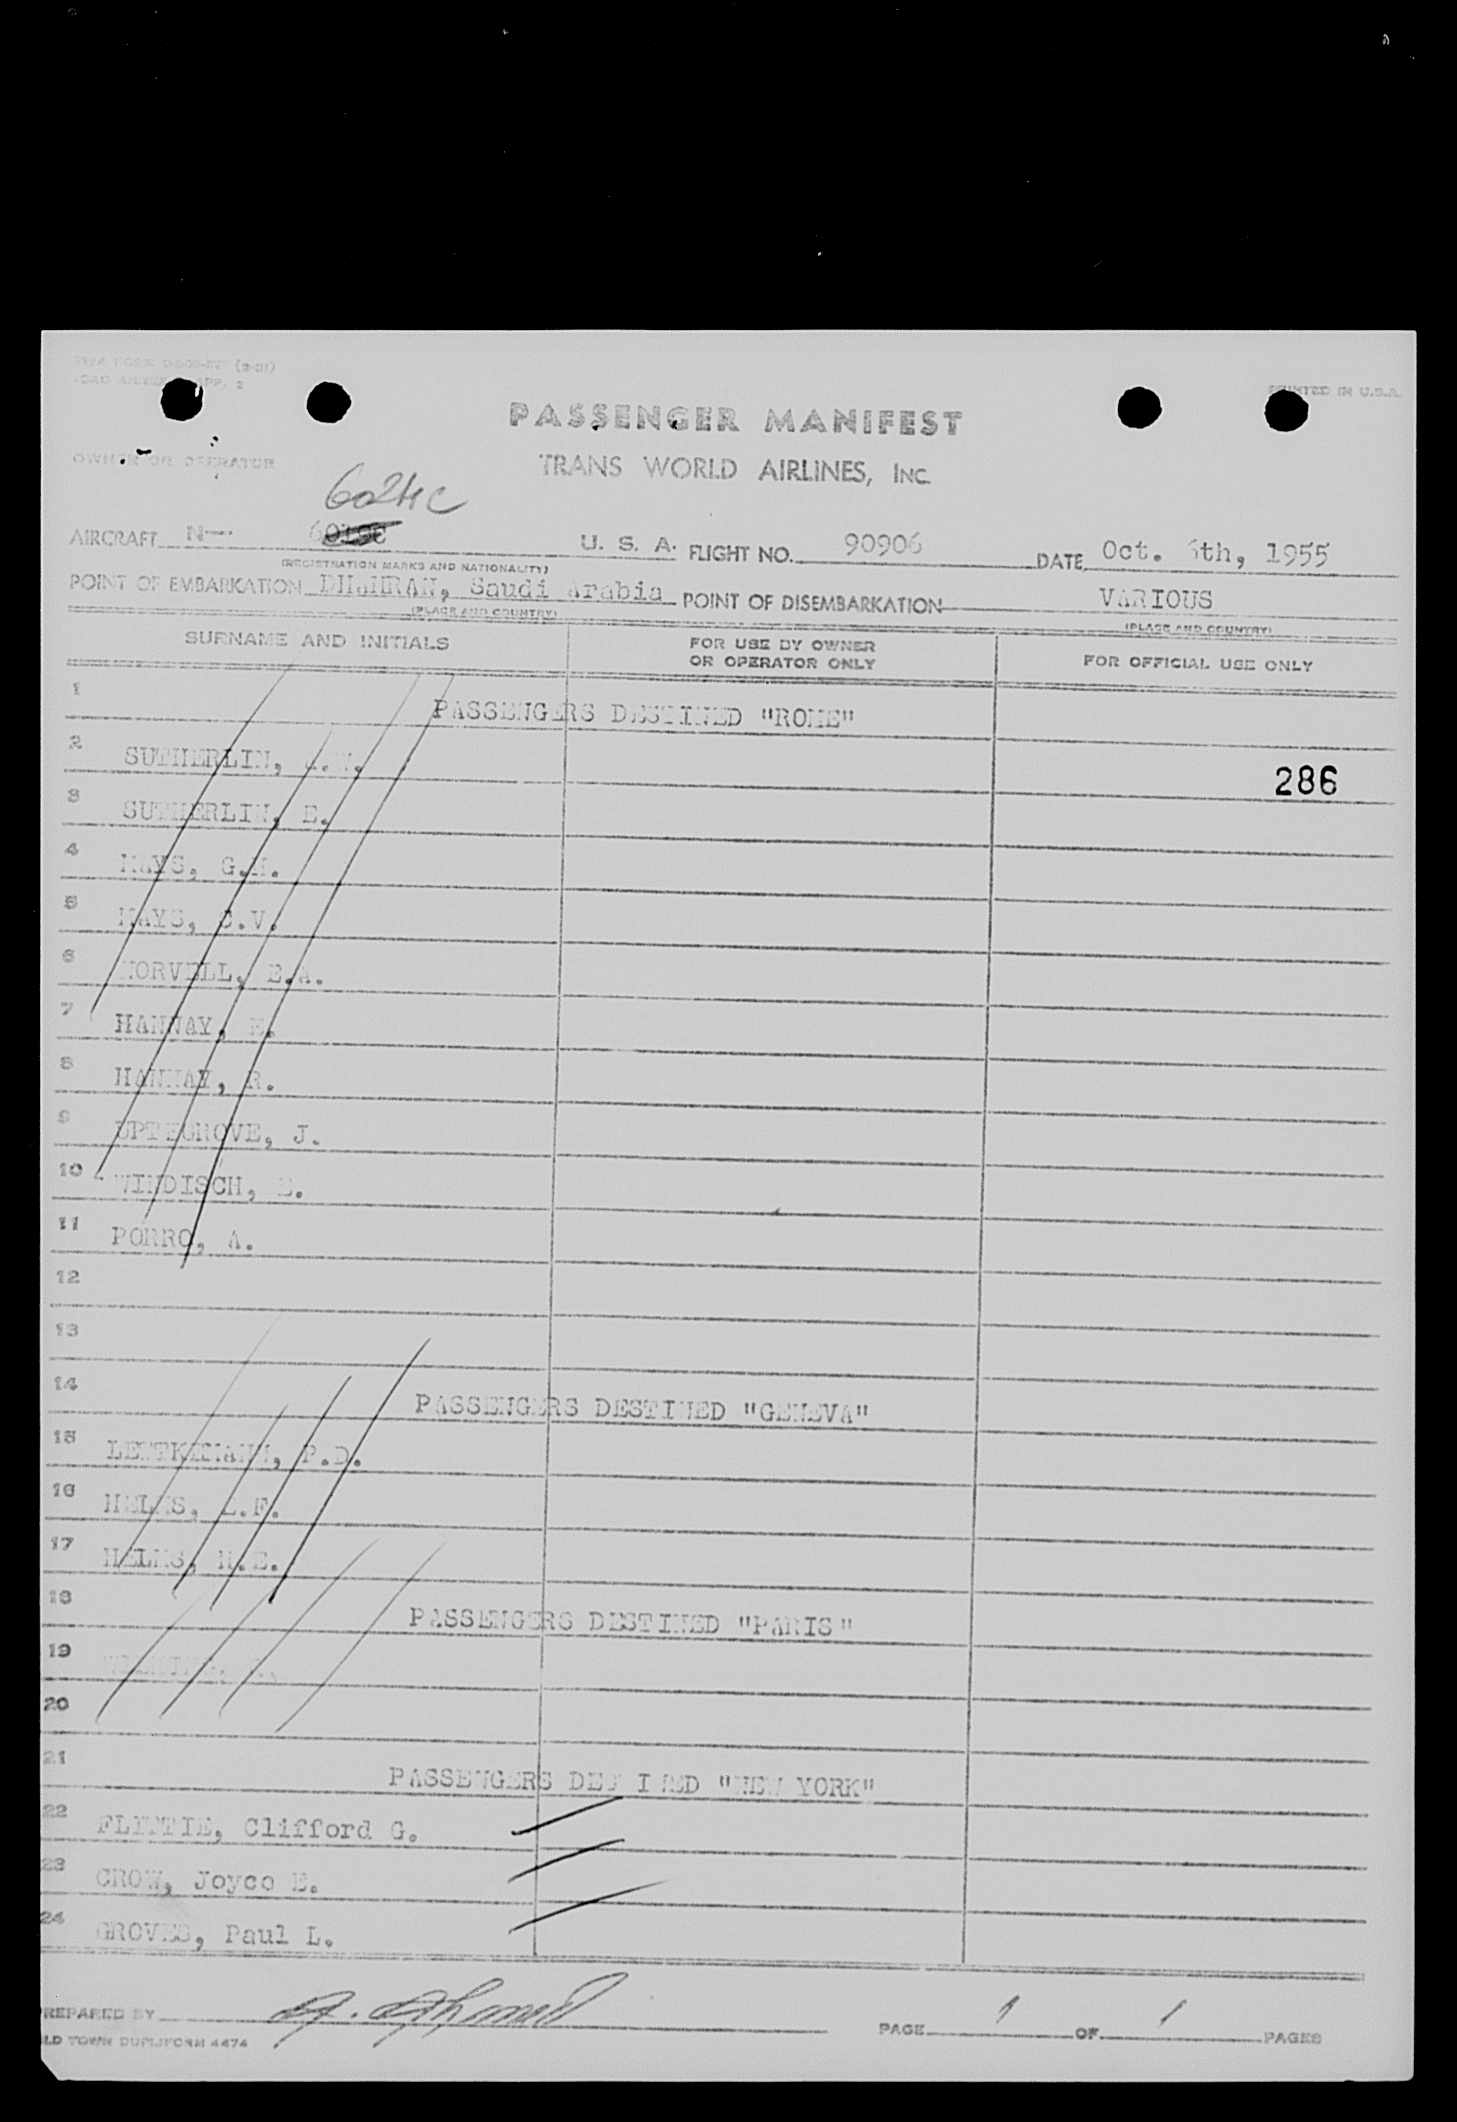 PRINTED IN U.S.A.
PASSENGER MANIFEST
OWNER OR OPERATOR
TRANS WORLD AIRLINES, INC.
6024C
AIRCRAFT N— U. S. A. FLIGHT NO. 90906 DATE Oct. 6th, 1955
(REGISTRATION MARKS AND NATIONALITY)
POINT OF EMBARKATION DHAHRAN, Saudi Arabia POINT OF DISEMBARKATION VARIOUS
(PLACE AND COUNTRY) (PLACE AND COUNTRY)
SURNAME AND INITIALS FOR USE BY OWNER OR OPERATOR ONLY FOR OFFICIAL USE ONLY
1 PASSENGERS DESTINED "ROME"
2 SUTHERLIN,
286
3 SUTHERLIN, E.
4 HAYS, G.M.
5 HAYS, C.V.
6 NORVELL, E.A.
7 HANNAY,
8 HANNAY, R.
9 UPTEGROVE, J.
10 WINDISCH, E.
11 PORRO, A.
12
13
14 PASSENGERS DESTINED "GENEVA"
15 P.D.
16 HELMS, L.F.
17 HELMS, M.E.
18 PASSENGERS DESTINED "PARIS"
19
20
21 PASSENGERS DESTINED "NEW YORK"
22 FLITTIE, Clifford G.
23 CROW, Joyce E.
24 GROVES, Paul L.
PREPARED BY A. Ahamed PAGE 1 OF 1 PAGES
OLD TOWN DUPLIFORM 4474